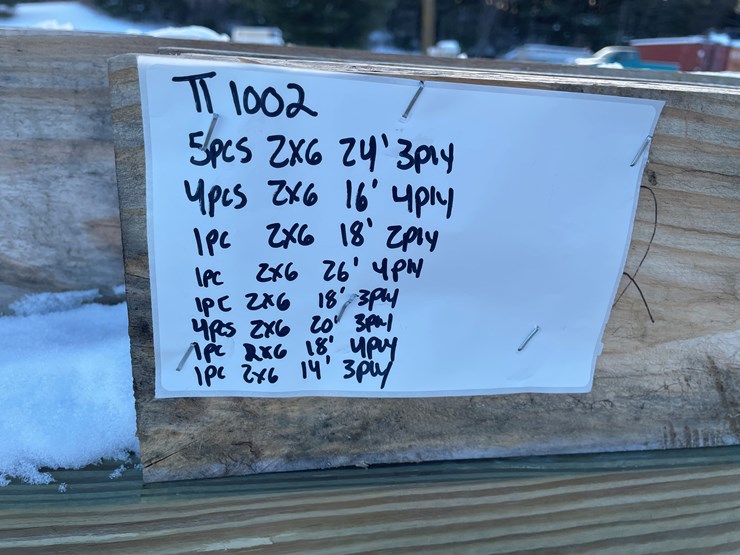 TT 1002
5pcs 2x6 24' 3ply
4pcs 2x6 16' 4ply
1pc 2x6 18' 2ply
1pc 2x6 26' 4ply
1pc 2x6 18' 3ply
4pcs 2x6 20' 3ply
1pc 2x6 18' 4ply
1pc 2x6 14' 3ply